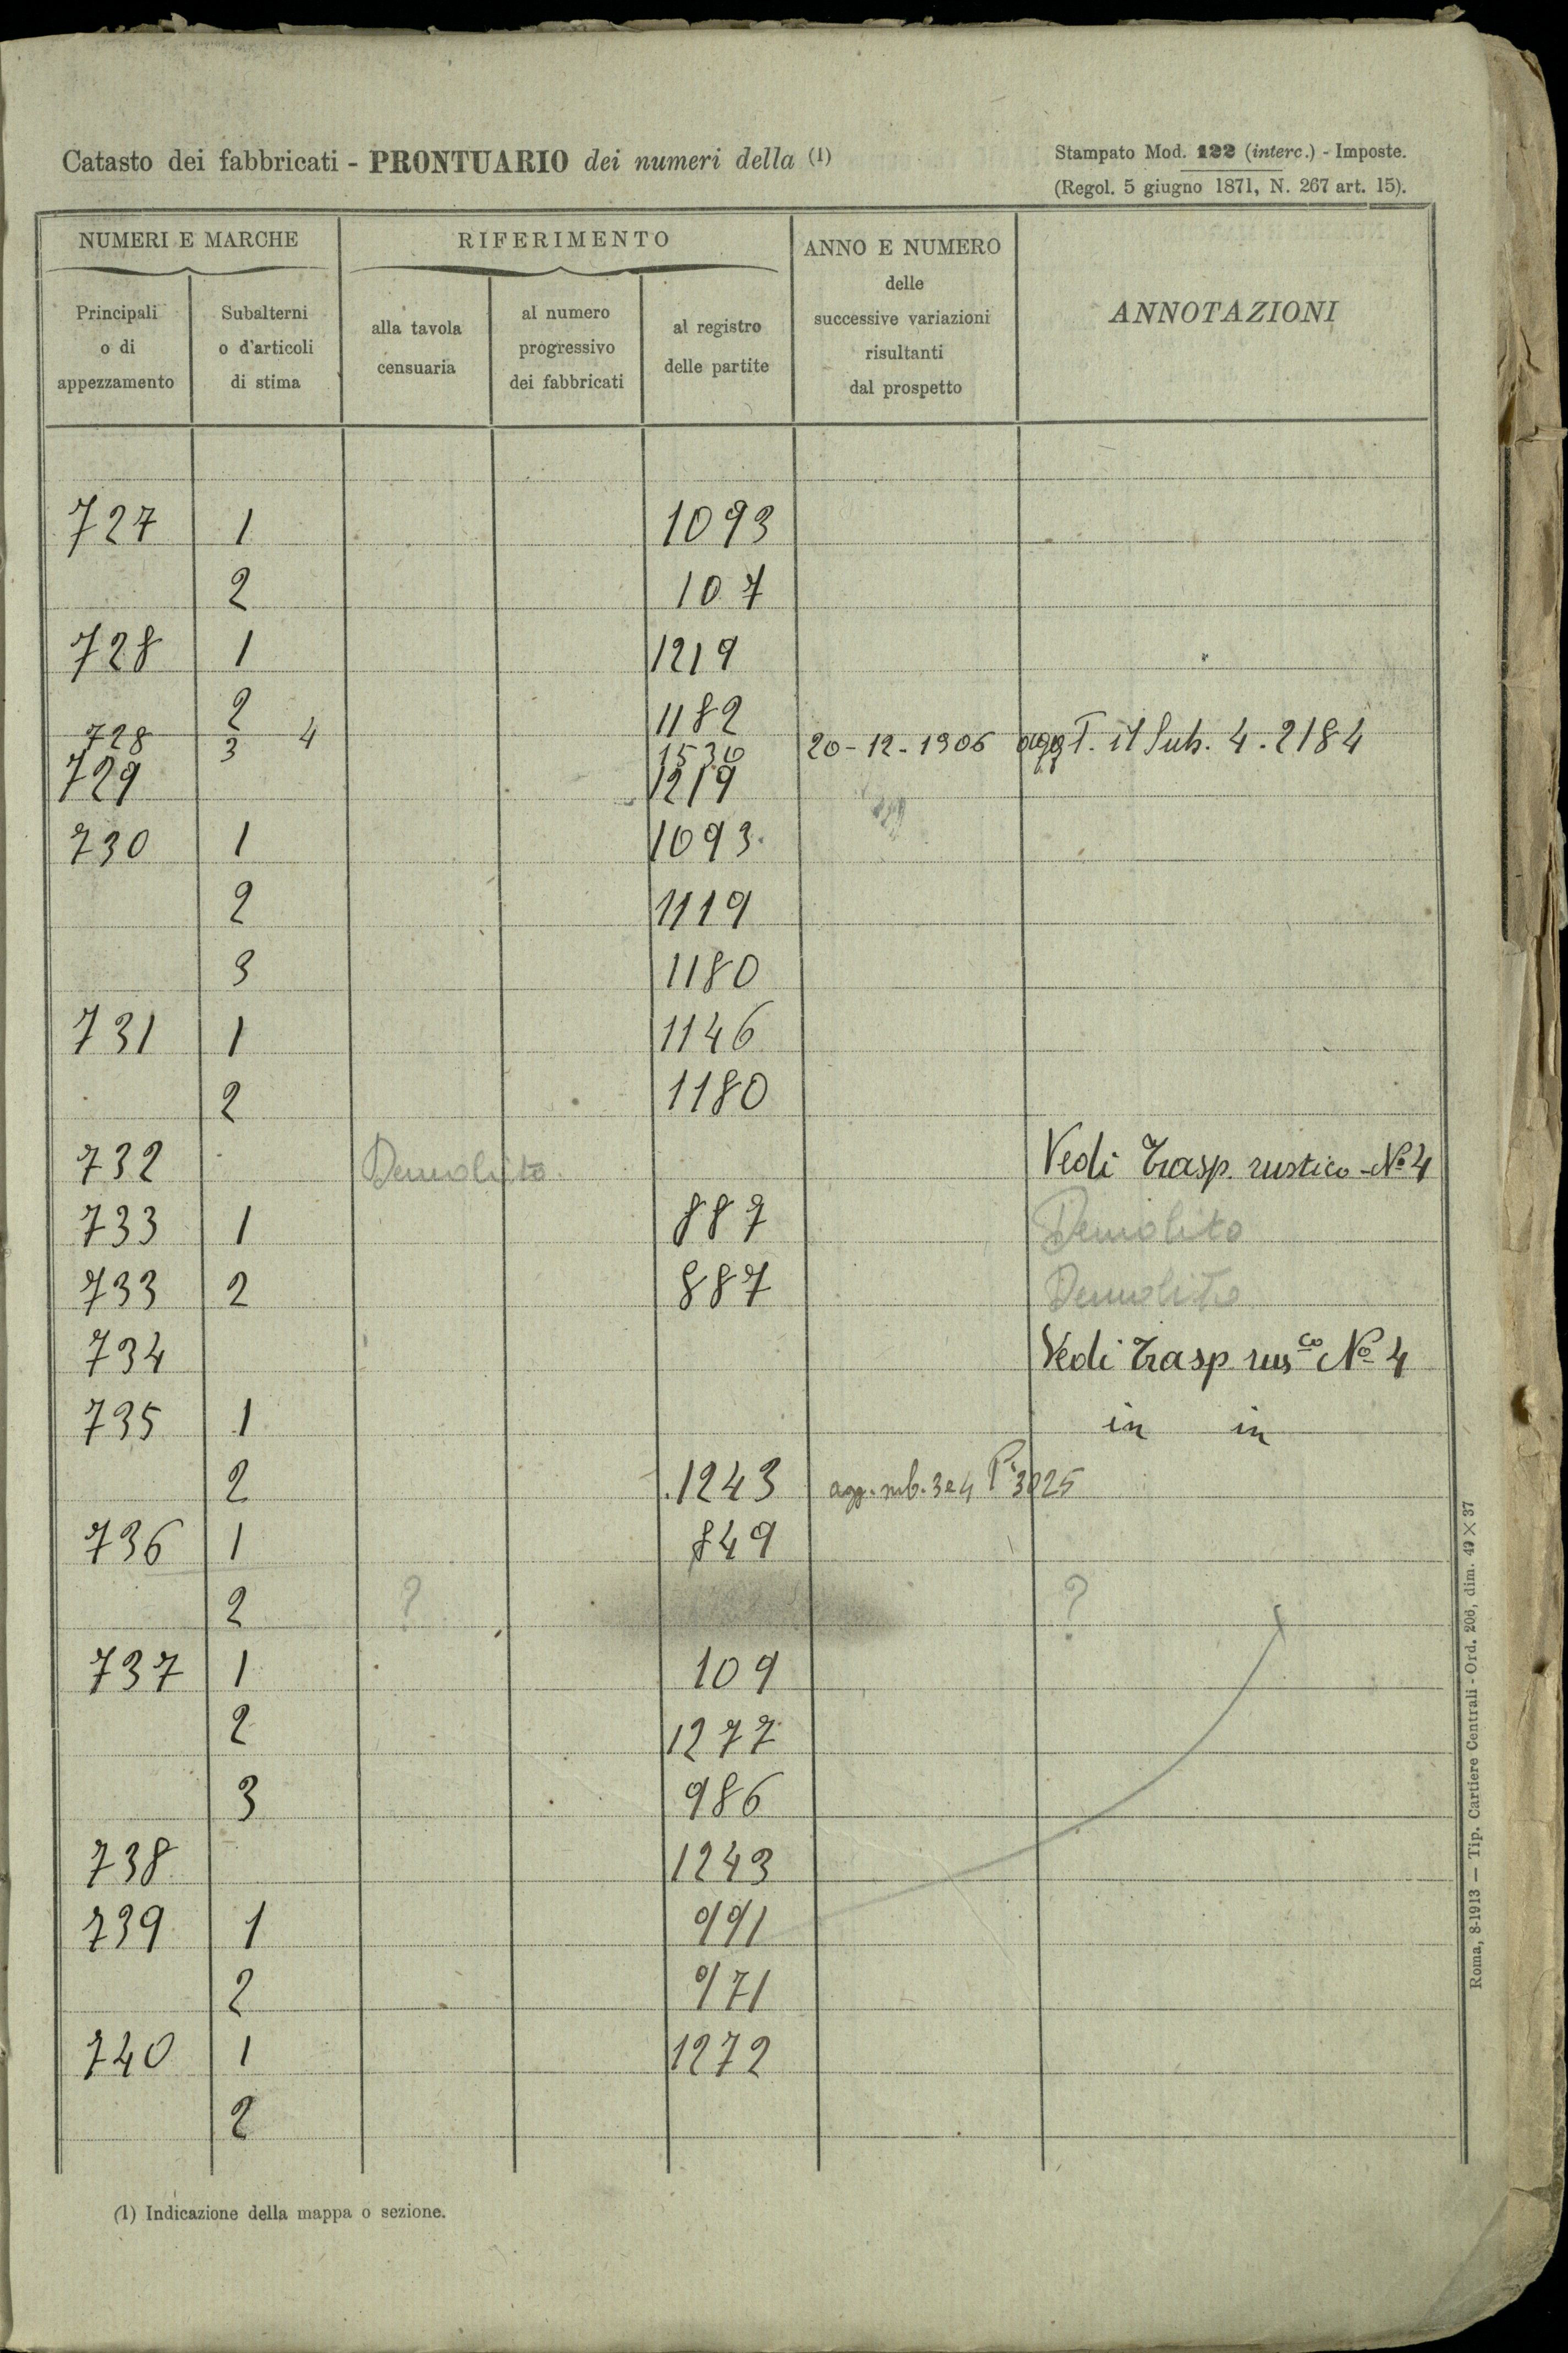 Catasto dei fabbricati - PRONTUARIO dei numeri della (1)
Stampato Mod. 122 (interc.) - Imposte.
(Regol. 5 giugno 1871, N. 267 art. 15).
NUMERI E MARCHE
RIFERIMENTO
ANNO E NUMERO
delle
successive variazioni
risultanti
dal prospetto
ANNOTAZIONI
Principali
o di
appezzamento
Subalterni
o d'articoli
di stima
alla tavola
censuaria
al numero
progressivo
dei fabbricati
al registro
delle partite
727 1 1093
2 107
728 1 1219
2 1182
728 3 4 1530 20-12-1906 aggT. il Sub. 4. 2184
729 1219
730 1 1093.
2 1119
3 1180
731 1 1146
2 1180
732 Demolito. Vedi Trasp. rustico - No 4
733 1 887 Demolito
733 2 887 Demolito
734 Vedi Trasp rusco No 4
735 1 in in
2 1243 agg. sub. 3 e 4 Pi 3025
736 1 849
2 ? ?
737 1 109
2 1277
3 986
738 1243
739 1 991
2 971
740 1 1272
2
(1) Indicazione della mappa o sezione.
Roma, 8-1913 — Tip. Cartiere Centrali - Ord. 206, dim. 49 × 37